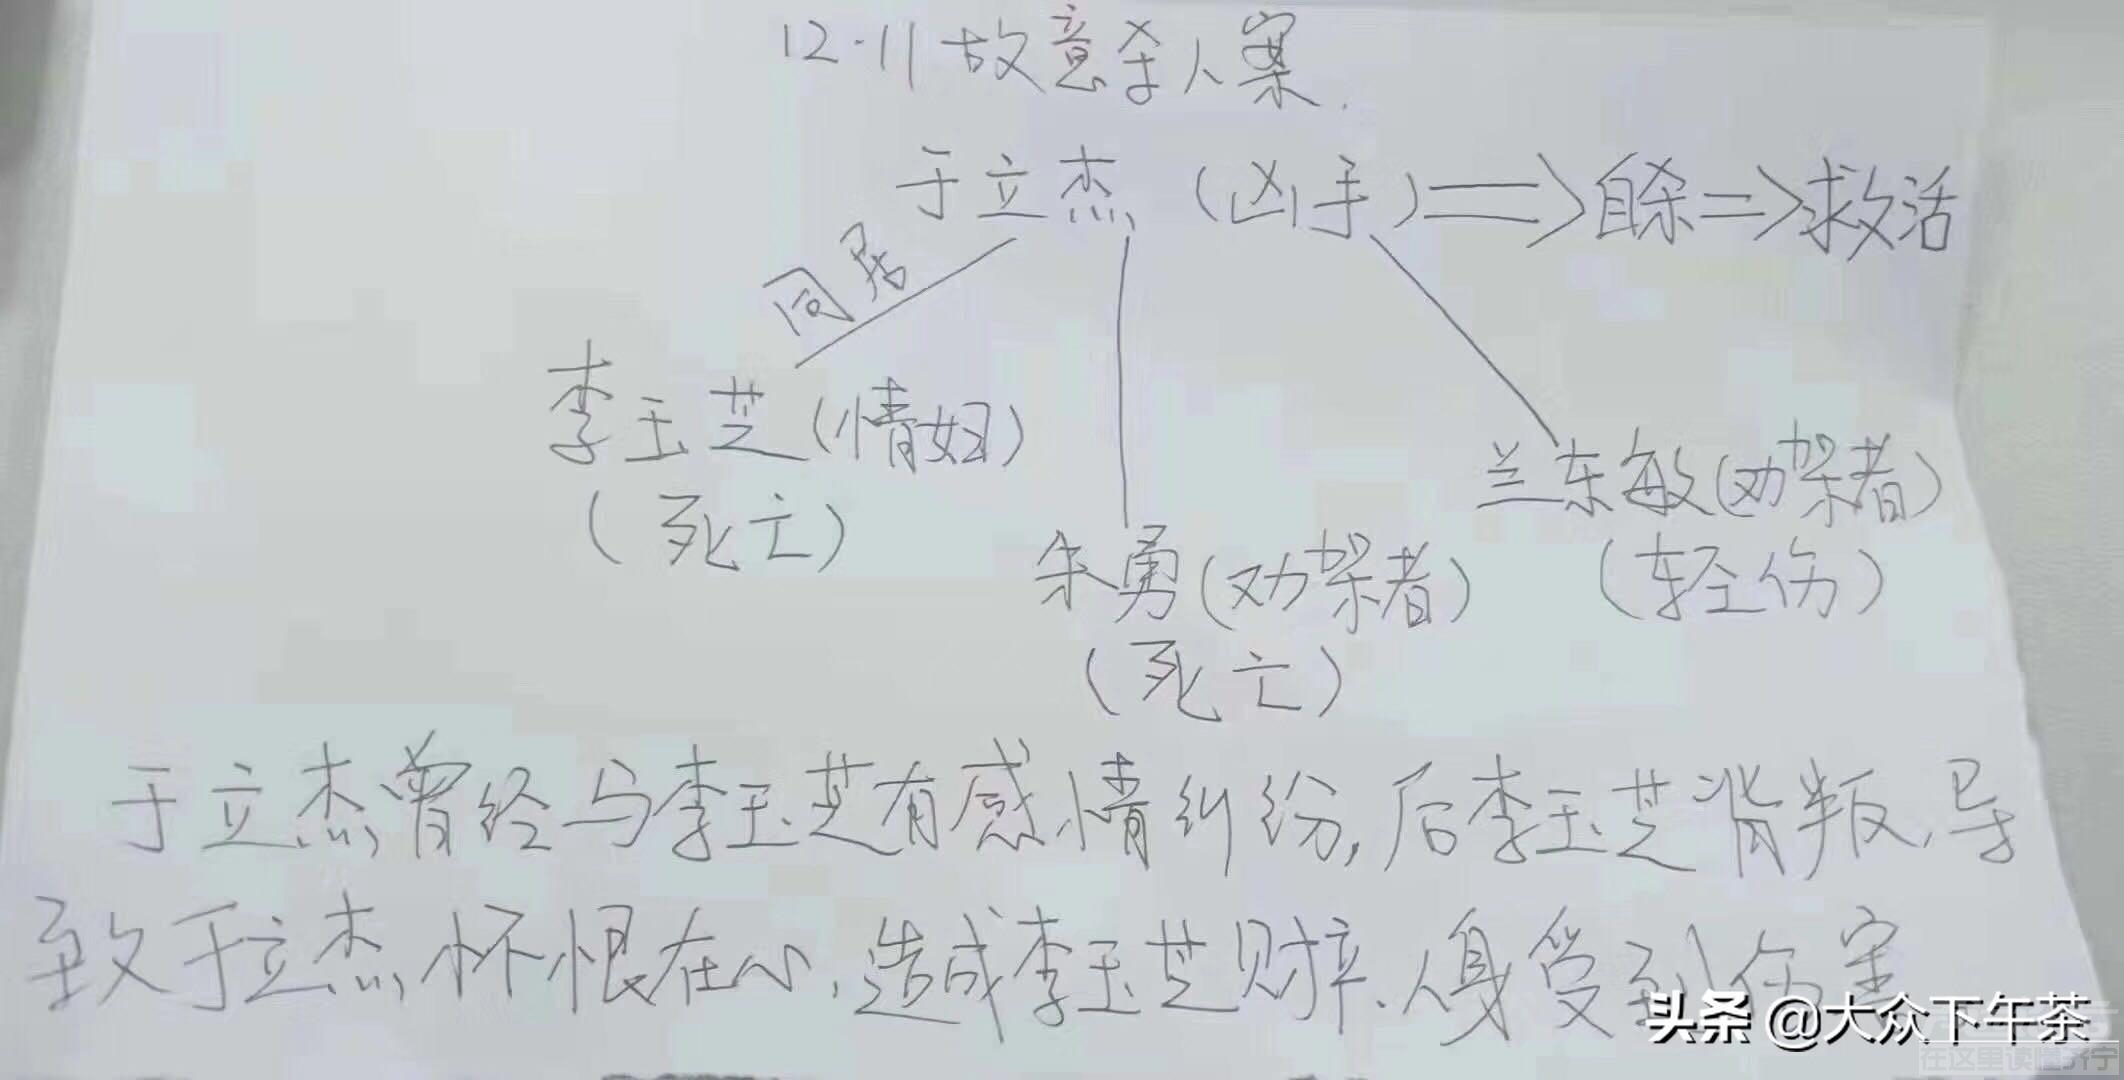 12·11故意杀人案.
于立杰(凶手)=>自杀=>救活
同居
李玉芝(情妇)
(死亡)
兰东敏(劝架者)
(轻伤)
朱勇(劝架者)
(死亡)
于立杰曾经与李玉芝有感情纠纷,后李玉芝背叛,导
致于立杰怀恨在心,造成李玉芝财产、人身受到伤害
头条 @大众下午茶
在这里读懂济宁